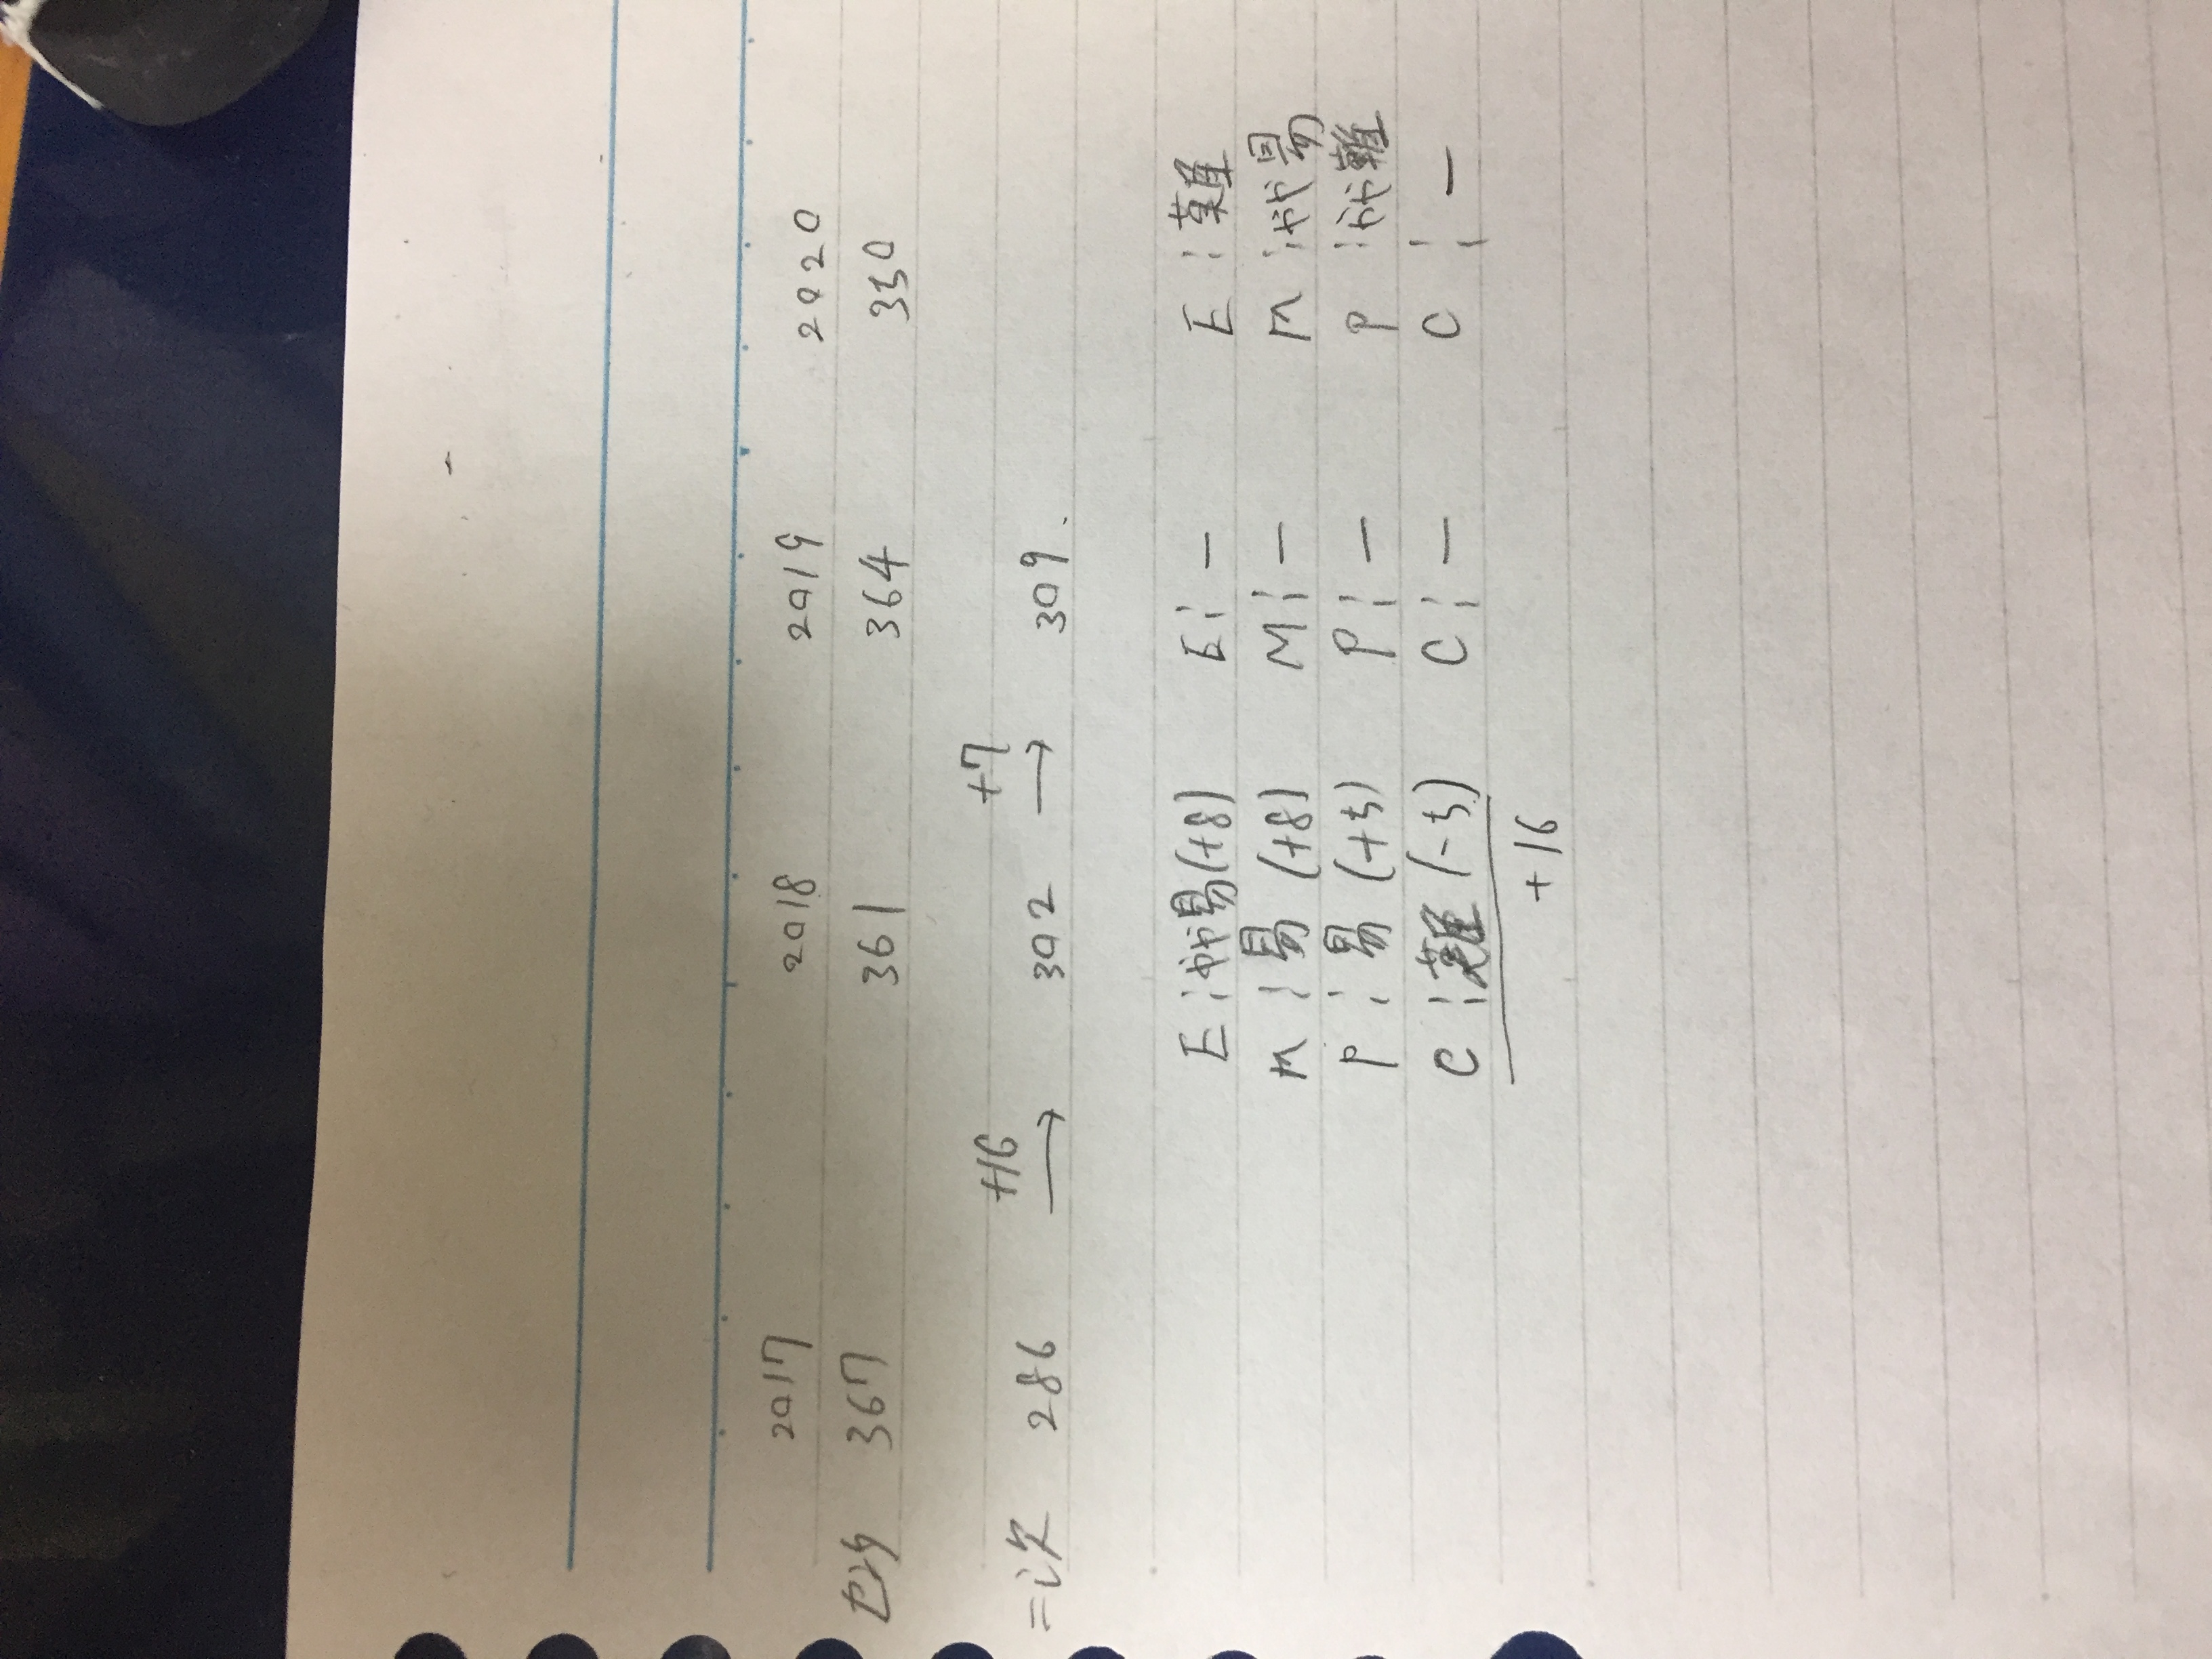 2017 2018 2019 2020
セン夕 367 361 364 350
+16 +7
二次 286 → 302 → 309.
E:やや易(+8) E:― E:難
M:易(+8) M:― M:やや易
P:易(+5) P:― P:やや難
C:難(-5) C:― C:―
+16